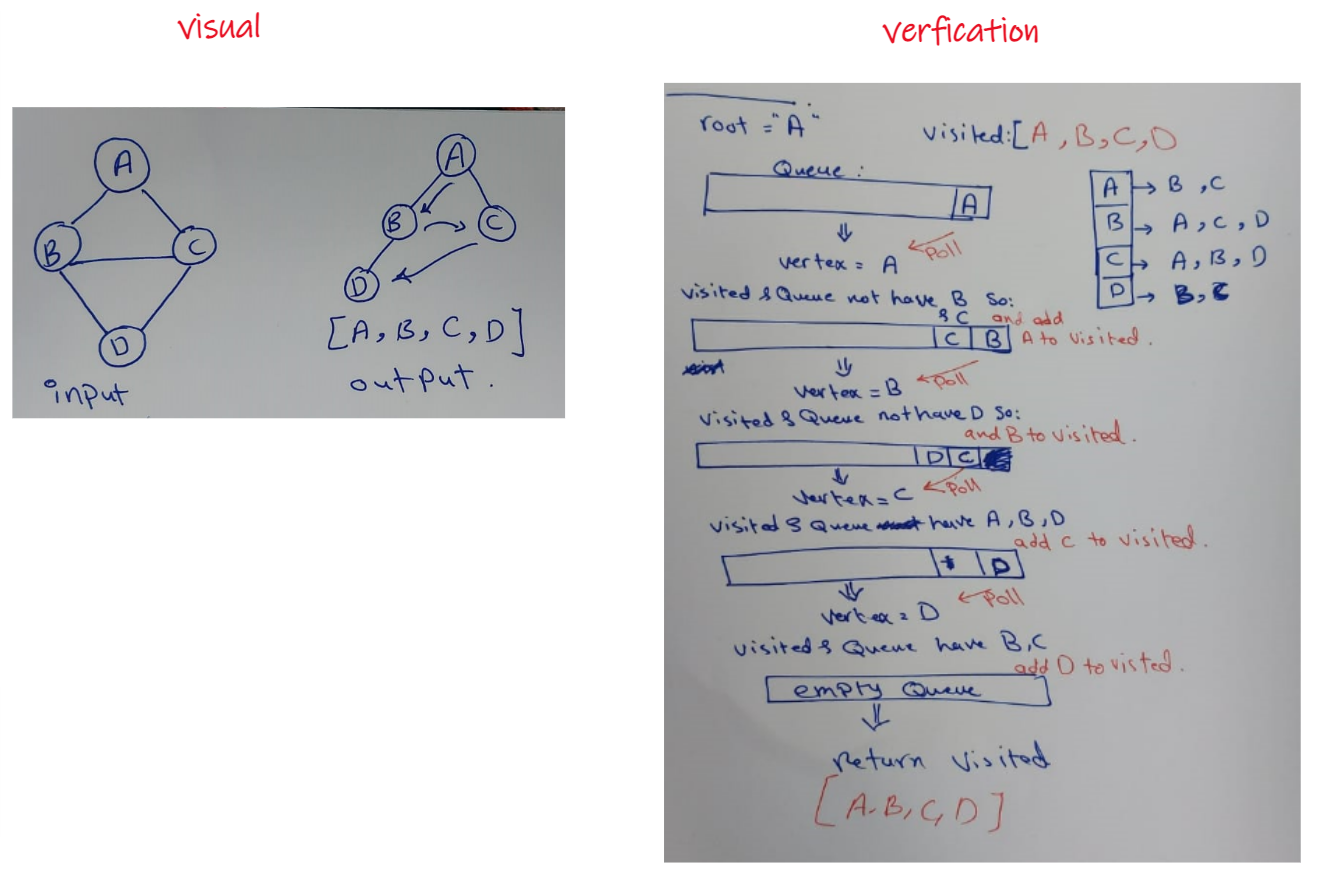 visual
A
B
C
D
input
A
B
C
D
[A, B, C, D]
output.
verfication
root = "A"
visited:[A, B, C, D
Queue:
A
A → B, C
B → A, C, D
C → A, B, D
D → B, C
Poll
vertex = A
visited & Queue not have B So:
& C and add
C B A to visited.
Poll
vertex = B
visited & Queue not have D So:
and B to visited.
D C
Poll
vertex = C
visited & Queue have A, B, D
add C to visited.
D
Poll
vertex = D
visited & Queue have B, C
add D to visted.
empty Queue
return visited
[A, B, C, D]